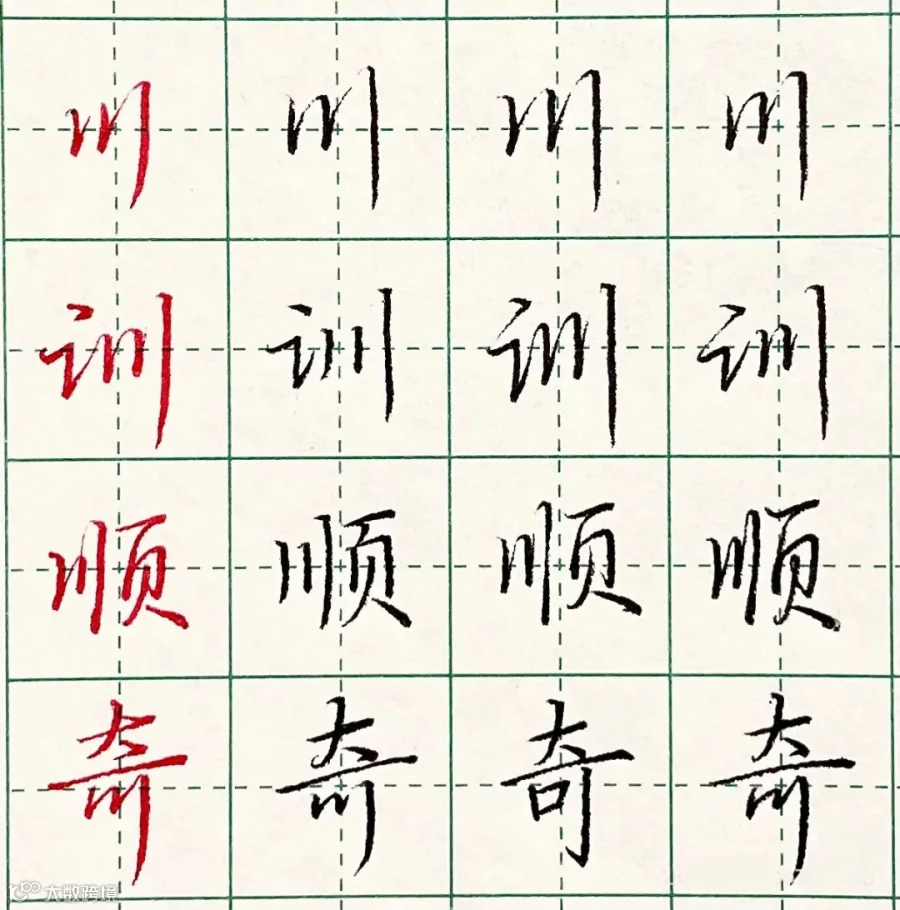 川 川 川 川
训 训 训 训
顺 顺 顺 顺
奇 奇 奇 奇
大数跨境